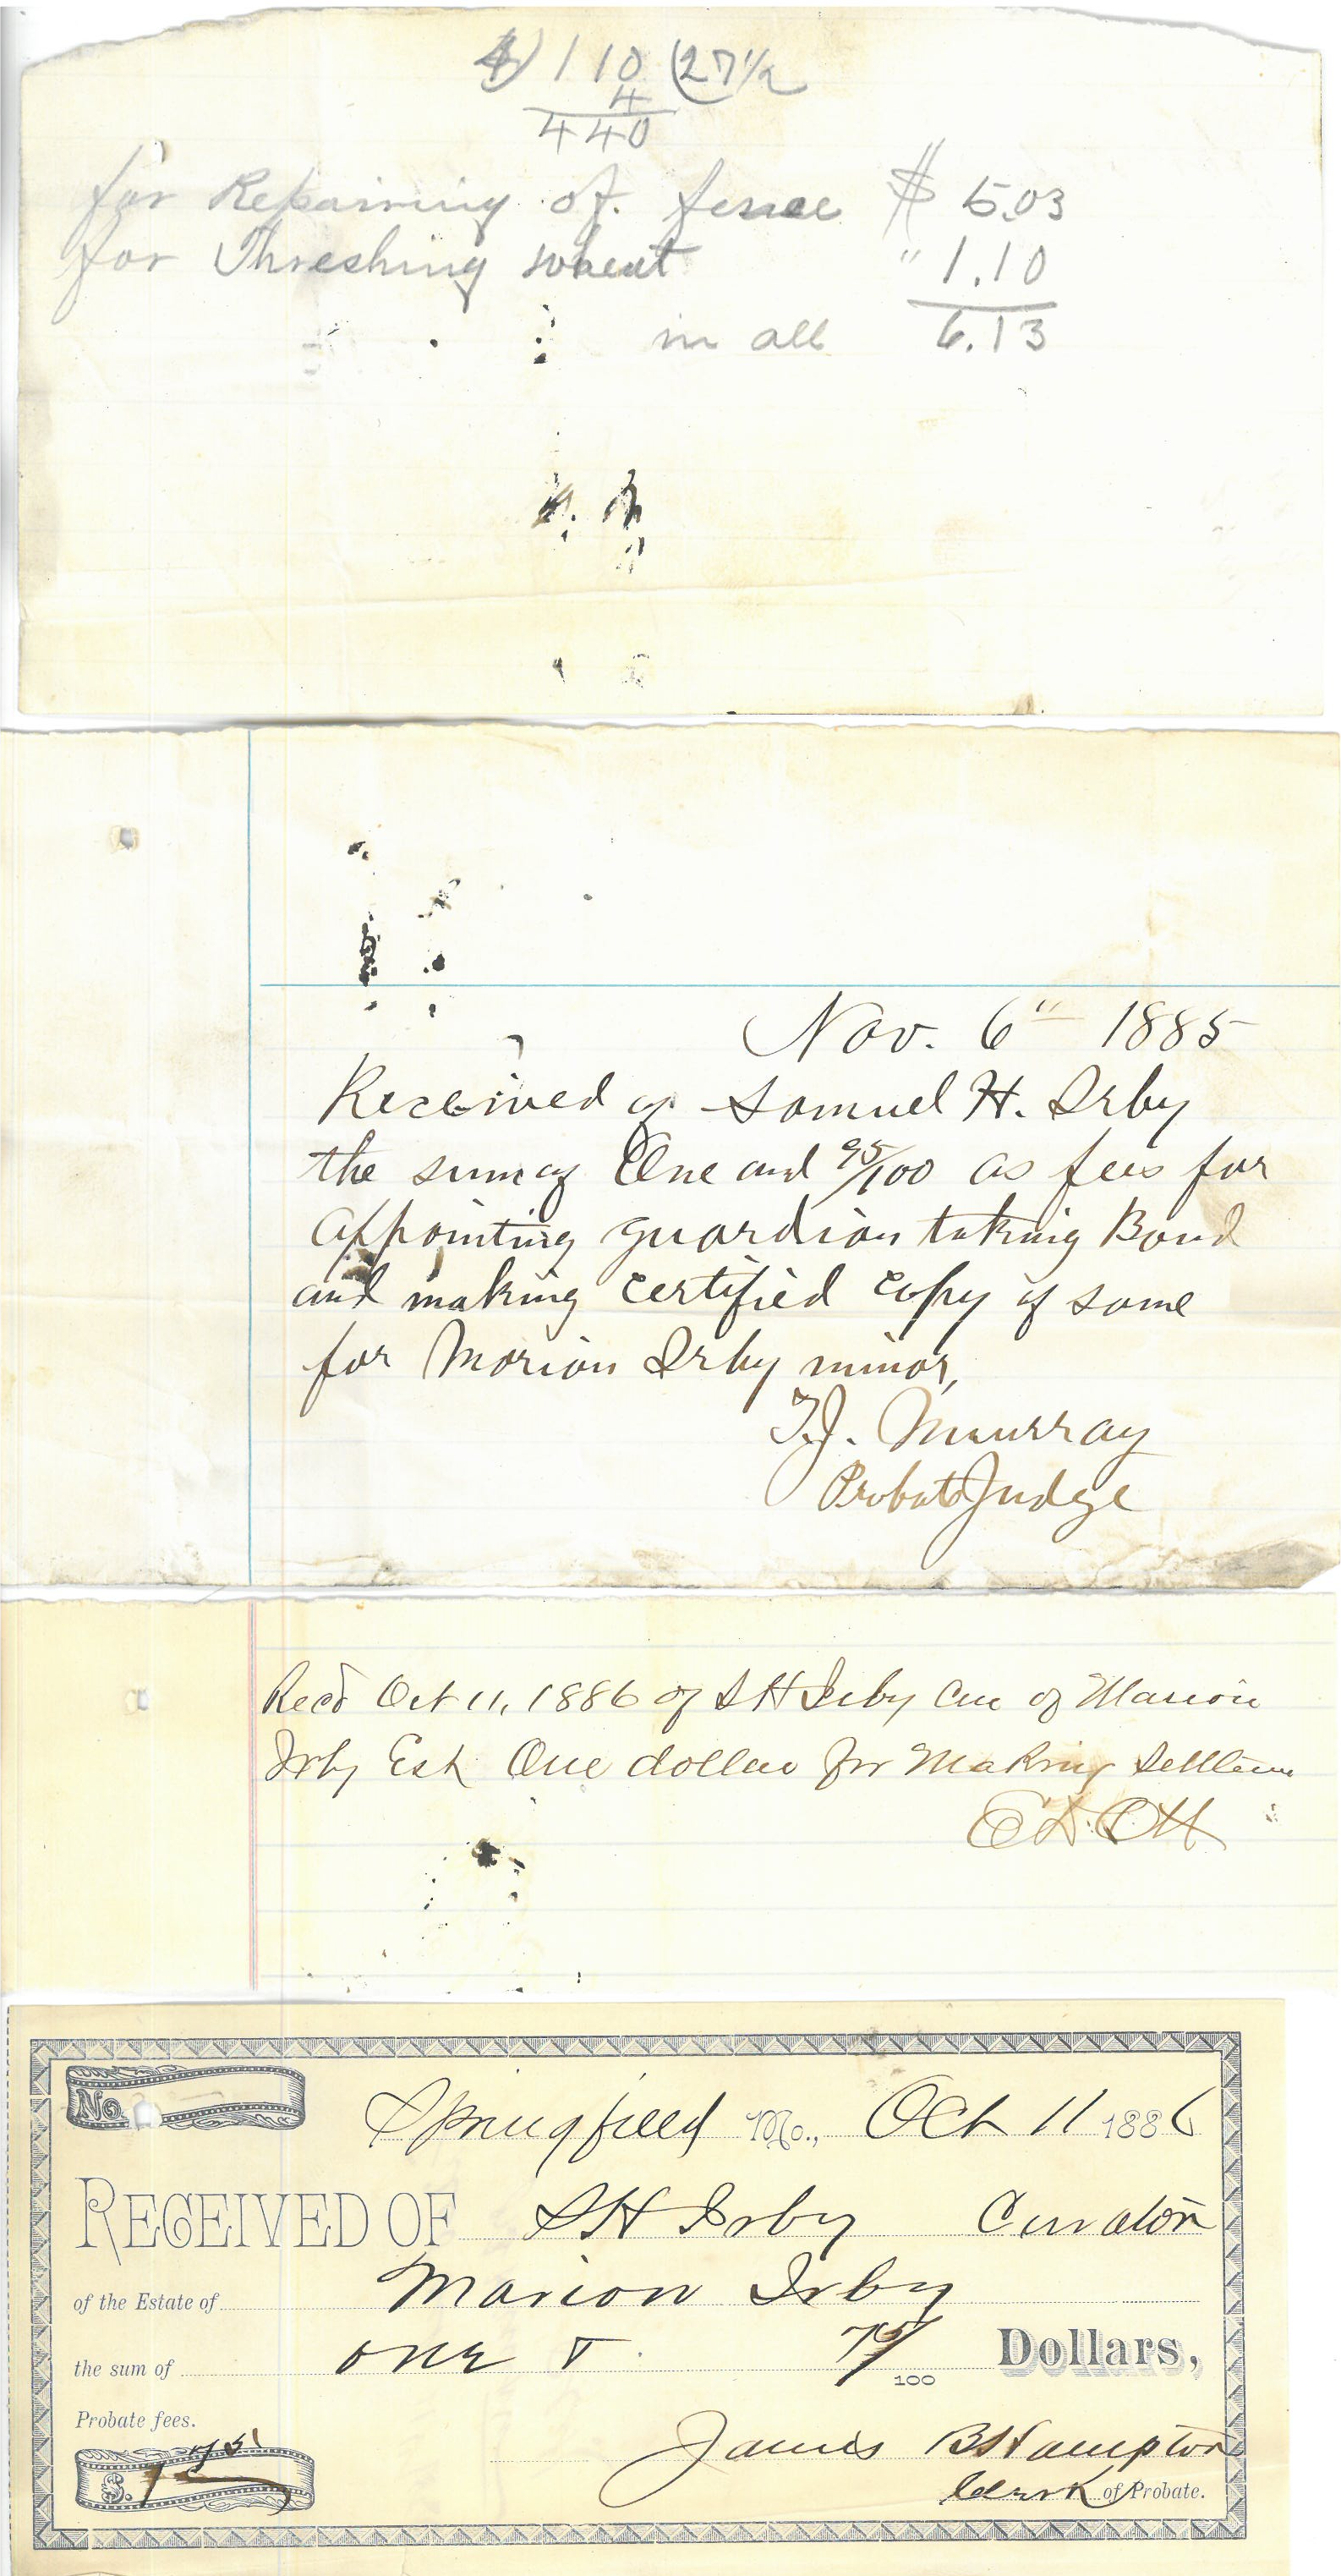 4) 110 (27 1/2
4
440
for Repairing of fence $ 5.03
for Threshing wheat " 1.10
in all 6.13
Nov. 6" 1885
Received of Samuel H. Irby
the sum of One and 95/100 as fees for
appointing guardian taking Bond
and making certified copy of same
for Marion Irby minor,
T.J. Murray
Probate Judge
Recd Oct 11, 1886 of S H Irby Cur of Marion
Irby Est One dollar for Making Settlem
E D Ott
No.
Springfield Mo., Oct 11 1886
RECEIVED OF S H Irby Curator
of the Estate of Marion Irby
the sum of one & 75/100 Dollars,
Probate fees.
$. 1 75
James B Hampton
Clerk of Probate.